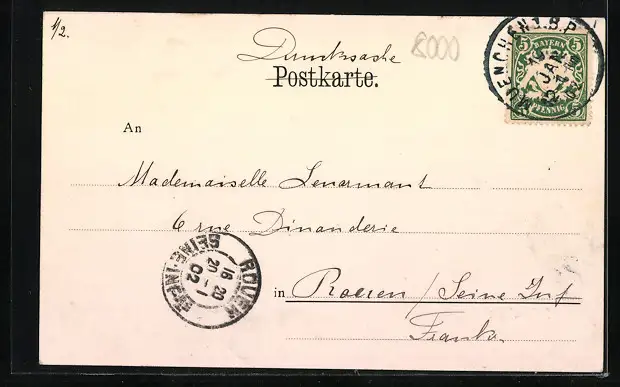 1/2.
8000
Drucksache
Postkarte.
MUENCHEN 1. B.P.
JAN
5 BAYERN 5
PFENNIG
An
Mademoiselle Lenormant
6 rue Dinanderie
in Roeren / Seine Inf
Frankr.
ROUEN
16 20
20 - 1
02
SEINE-INFRE